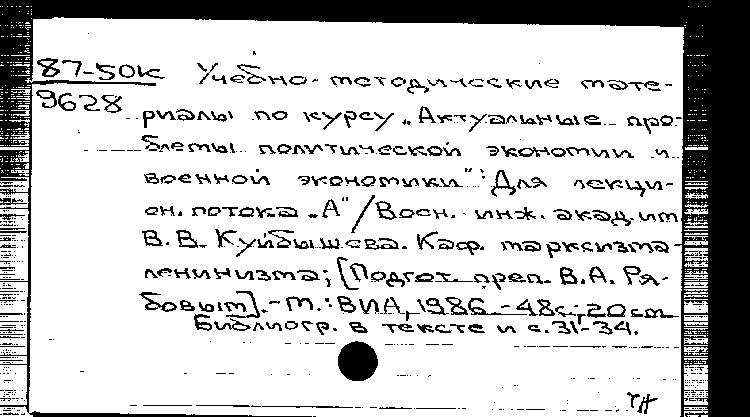 87-50к Учебно-методические мате-
9628 риалы по курсу „Актуальные про-
блемы политической экономии и
военной экономики": Для лекци-
он. потока „А"/Воен. инж. акад. им.
В.В. Куйбышева. Каф. марксизма-
ленинизма; [Подгот. преп. В.А. Ря-
бовым]. - М.: ВИА, 1986. - 48с.; 20см
Библиогр. в тексте и с. 31-34.